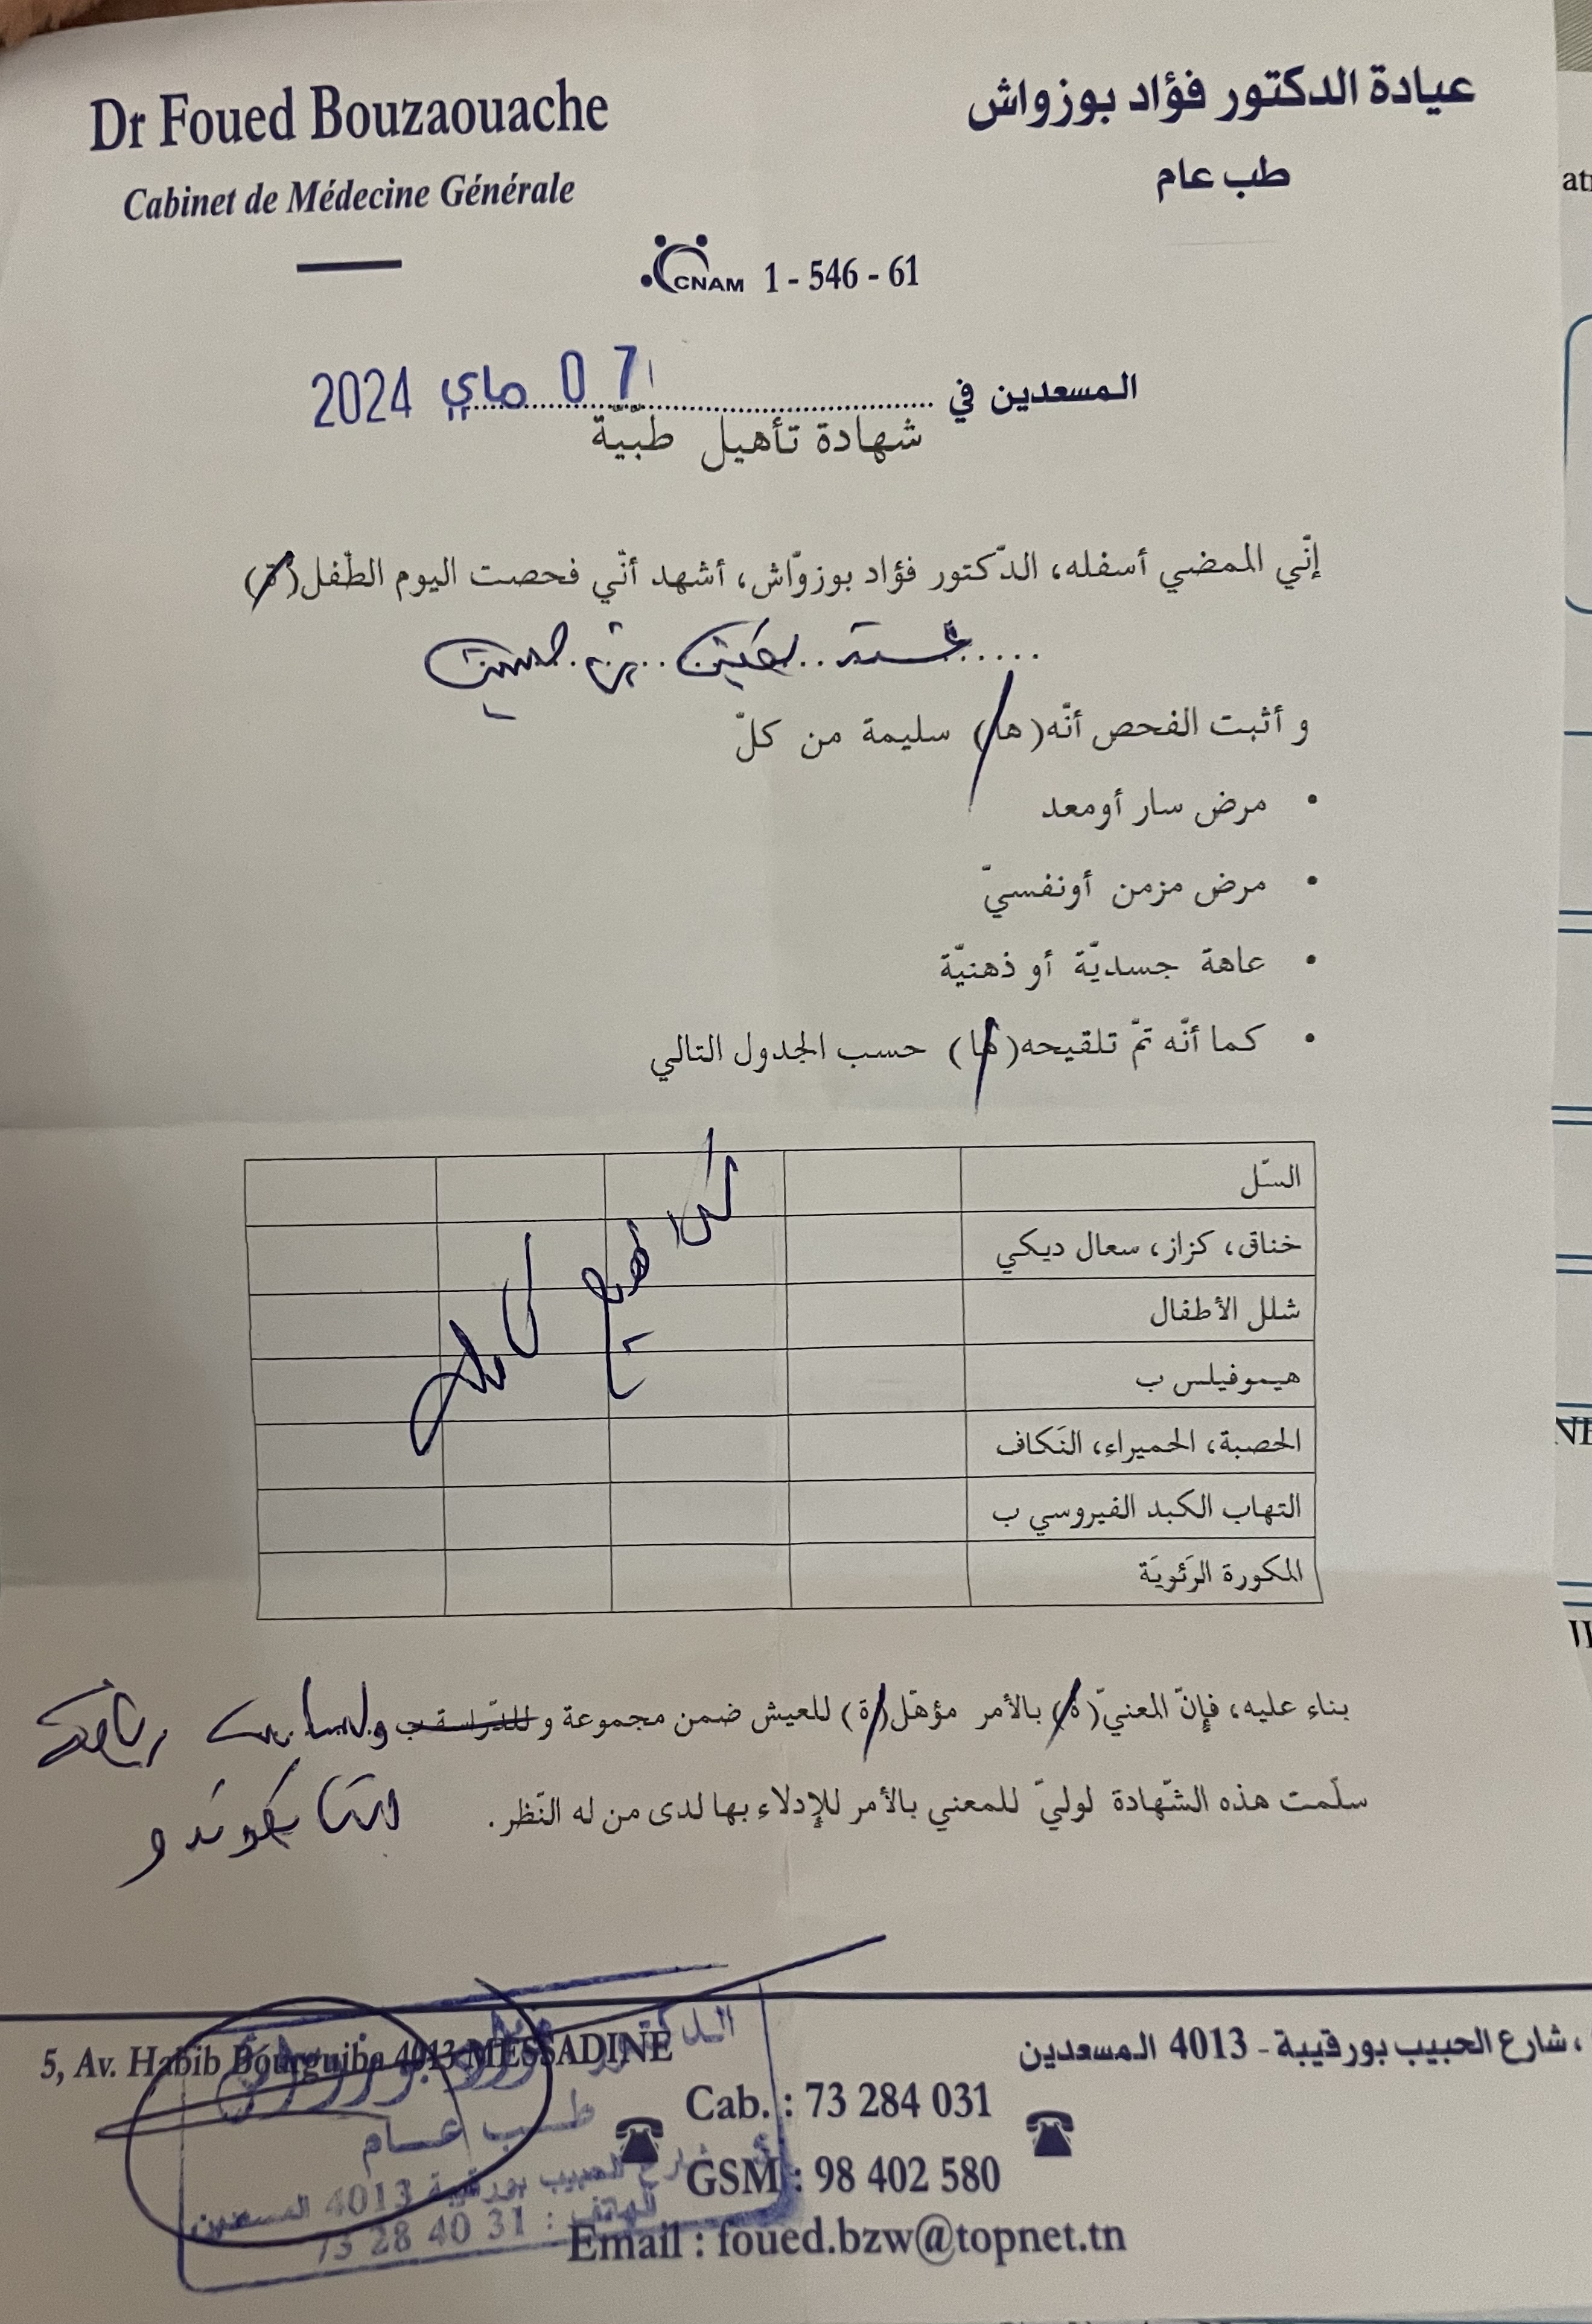 Dr Foued Bouzaouache
عيادة الدكتور فؤاد بوزواش
Cabinet de Médecine Générale
طب عام
CNAM 1 - 546 - 61
المسعدين في 07 ماي 2024
شهادة تأهيل طبية
إنّي الممضي أسفله، الدّكتور فؤاد بوزوّاش، أشهد أنّي فحصت اليوم الطّفل(ة)
بن
و أثبت الفحص أنّه(ها) سليمة من كلّ
• مرض سار أومعد
• مرض مزمن أونفسيّ
• عاهة جسديّة أو ذهنيّة
• كما أنّه تمّ تلقيحه(ها) حسب الجدول التالي
السّل
خناق، كزاز، سعال ديكي
شلل الأطفال
هيموفيلس ب
الحصبة، الحميراء، النّكاف
التهاب الكبد الفيروسي ب
المكورة الرّئويّة
بناء عليه، فإنّ المعنيّ(ة) بالأمر مؤهّل(ة) للعيش ضمن مجموعة و للدّراسة رياضة
سلّمت هذه الشّهادة لوليّ للمعني بالأمر للإدلاء بها لدى من له النّظر.
5, Av. Habib Bourguiba 4013 MESSADINE
، شارع الحبيب بورقيبة - 4013 المسعدين
Cab. : 73 284 031
GSM : 98 402 580
Email : foued.bzw@topnet.tn
الدكتور فؤاد بوزواش
طب عام
شارع الحبيب بورقيبة 4013 المسعدين
الهاتف : 73 28 40 31